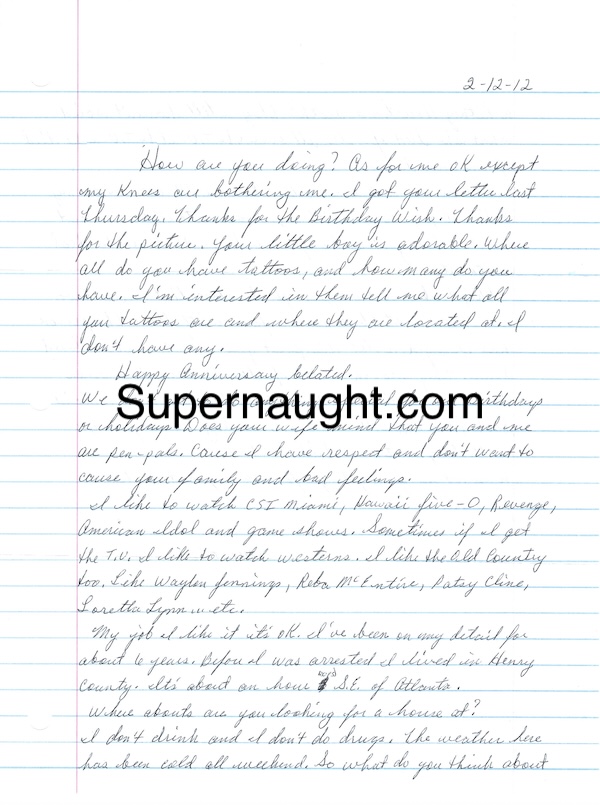 2-12-12
How are you doing? As for me ok except
my Knees are bothering me. I got your letter last
Thursday. Thanks for the Birthday Wish. Thanks
for the picture. Your little boy is adorable. Where
all do you have tattoos, and how many do you
have. I'm interested in them tell me what all
your tattoos are and where they are located at. I
don't have any.
Happy Anniversary belated.
We birthdays
Supernaught.com
or holidays. Does your wife mind that you and me
are pen-pals. Cause I have respect and don't want to
cause your family and bad feelings.
I like to watch CSI Miami, Hawaii five-O, Revenge,
American Idol and game shows. Sometimes if I get
the T.V. I like to watch westerns. I like the old Country
too. Like Waylon Jennings, Reba McEntire, Patsy Cline,
Loretta Lynn etc.
My job I like it it's ok. I've been on my detail for
about 6 years. Before I was arrested I lived in Henry
County. It's about an hour S.E. of Atlanta.
Where abouts are you looking for a house at?
I don't drink and I don't do drugs. The weather here
has been cold all weekend. So what do you think about